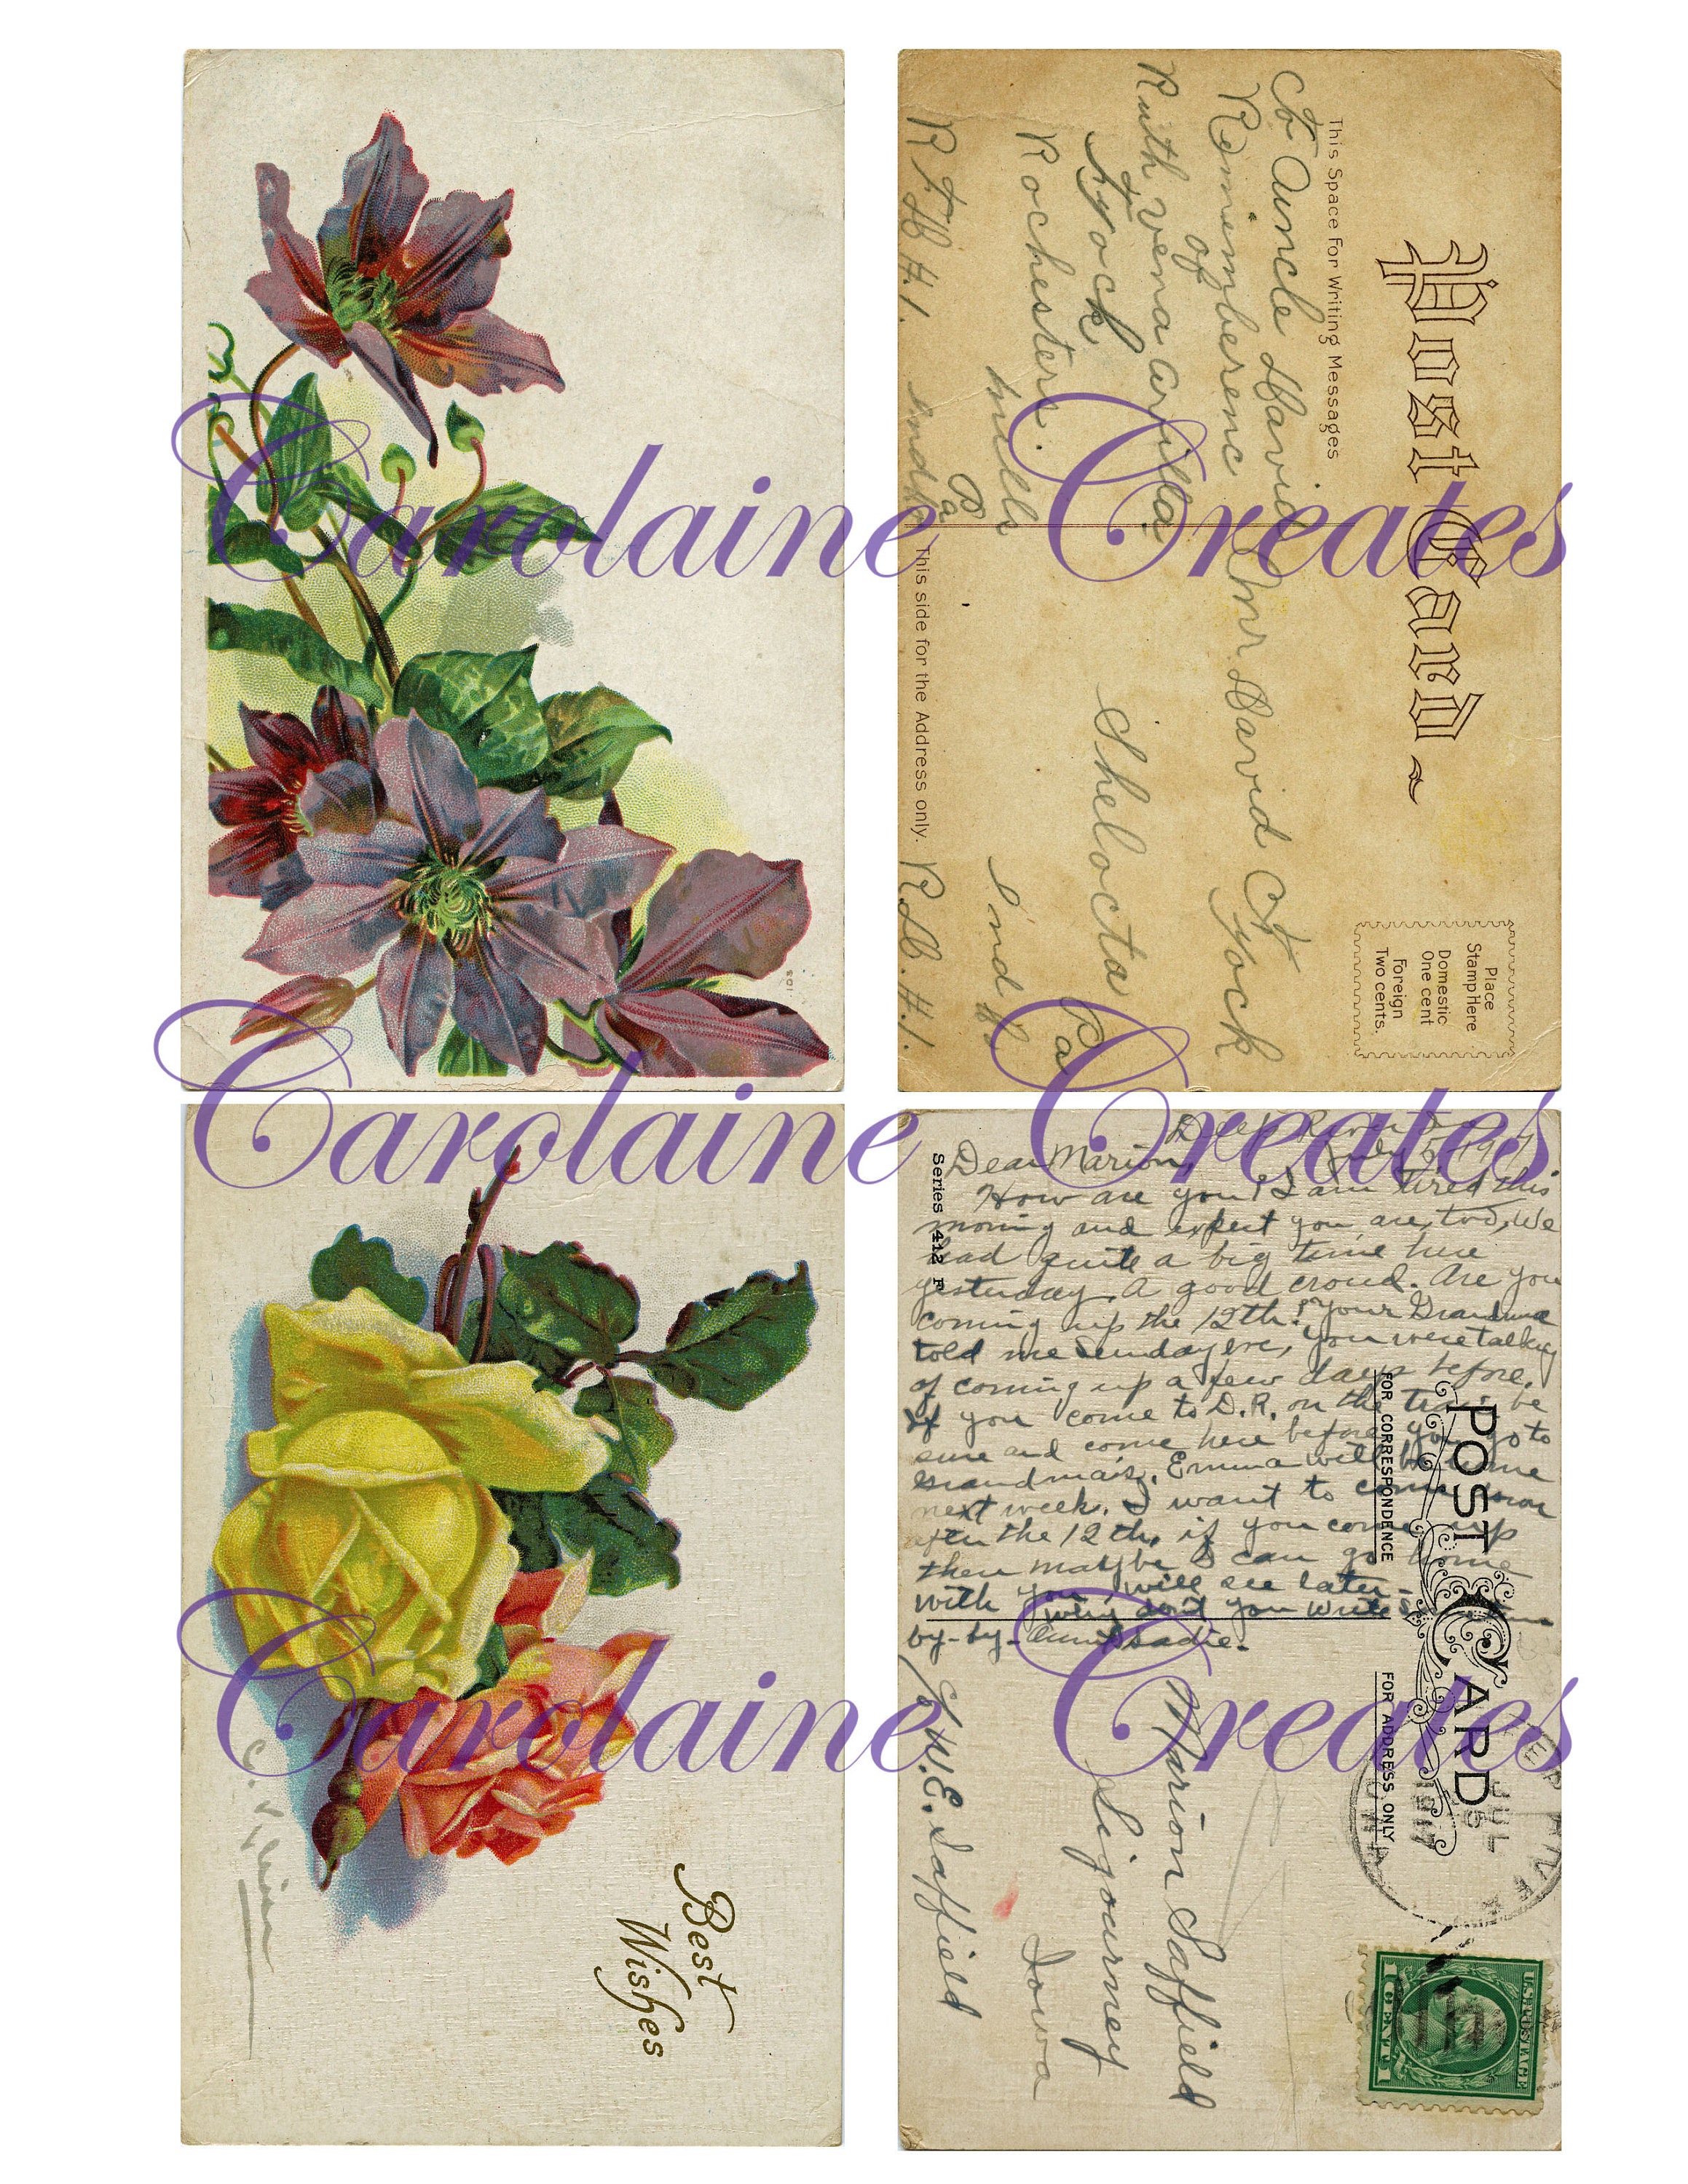 Post Card
This Space For Writing Messages
Place
Stamp Here
Domestic
One cent
Foreign
Two cents.
To Auncle David
Rememberenc
of
Ruth verna arvilla
Yock
Rochestere.
mills
Pa
R F
Mr David
Yock
Shelocta
Ind
Pa
This side for the Address only.
201
Carolaine Creates
Carolaine Creates
Best
Wishes
Dear Marion,
How are you? I am tired this
morning and expect you are, too, We
had quite a big time here
yesterday. A good crowd. Are you
coming up the 12th? Your Grandma
told me Sunday eve, you were talking
of coming up a few days before.
If you come to D.R. on the train be
sure and come here before you go to
Grandma's. Emma will be home
next week. I want to come
after the 12th, if you come up
then maybe I can go home
with you will see later-
Why don't you write
by-by- Aunt Sadie.
Series 412 F
POST CARD
FOR CORRESPONDENCE
FOR ADDRESS ONLY
JUL
1917
U.S. POSTAGE
1 CENT 1
Marion Saffield
Sigourney
Iowa
c/o W.E. Saffield
Carolaine Creates